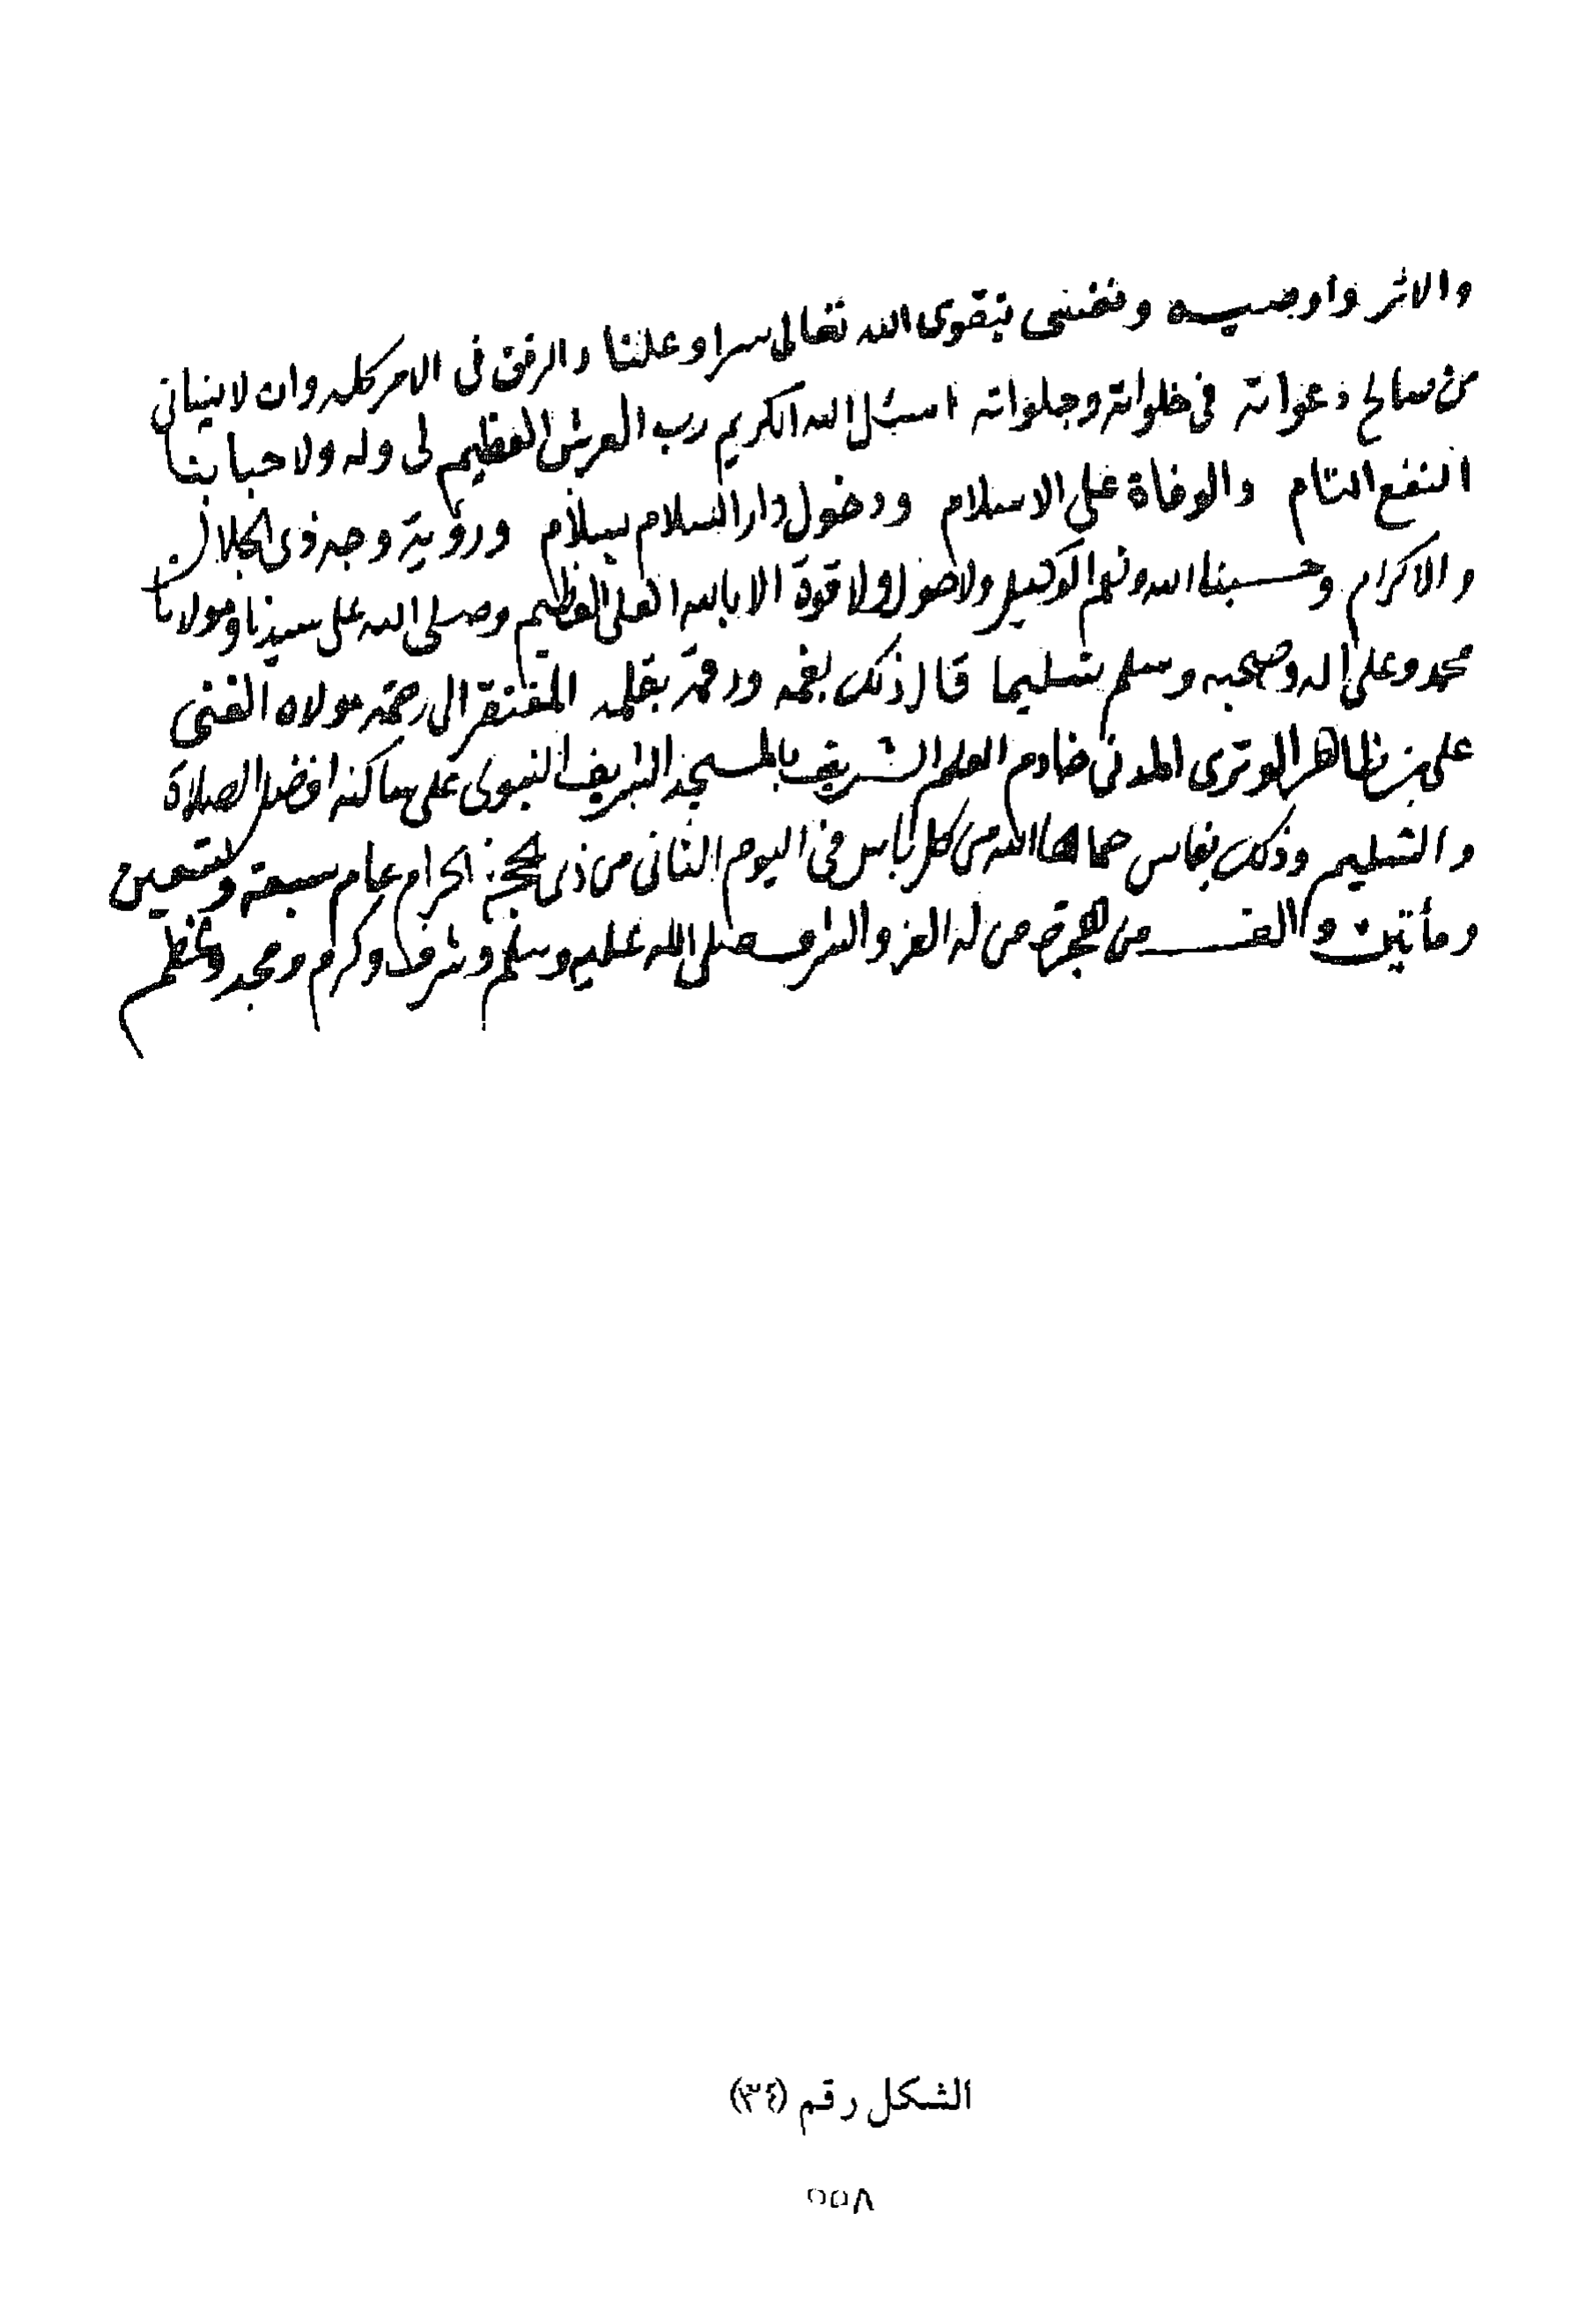 والاثر وأوصيه ونفسى بتقوى الله تعالى سرا وعلنا والرفق فى الامر كله وان لا ينسانى
من صالح دعواته فى خلواته وجلواته اسئل الله الكريم رب العرش العظيم لى وله ولاحبابنا
النفع التام والوفاة على الاسلام ودخول دار السلام بسلام ورؤية وجه ذى الجلال
والاكرام وحسبنا الله ونعم الوكيل ولا حول ولا قوة الا بالله العلى العظيم وصلى الله على سيدنا ومولانا
محمد وعلى اله وصحبه وسلم تسليما قال ذلك بفمه ورقمه بقلمه المفتقر الى رحمة مولاه الغنى
على بن ظاهر الوترى المدنى خادم العلم الشريف بالمسجد الشريف النبوى على ساكنه افضل الصلاة
والتسليم وذلك بفاس حماها الله من كل باس فى اليوم الثانى من ذى الحجة الحرام عام سبعة وتسعين
ومأتين والف من هجرة من له العز والشرف صلى الله عليه وسلم وشرف وكرم ومجد وعظم
الشكل رقم (٣٤)
٥٥٨